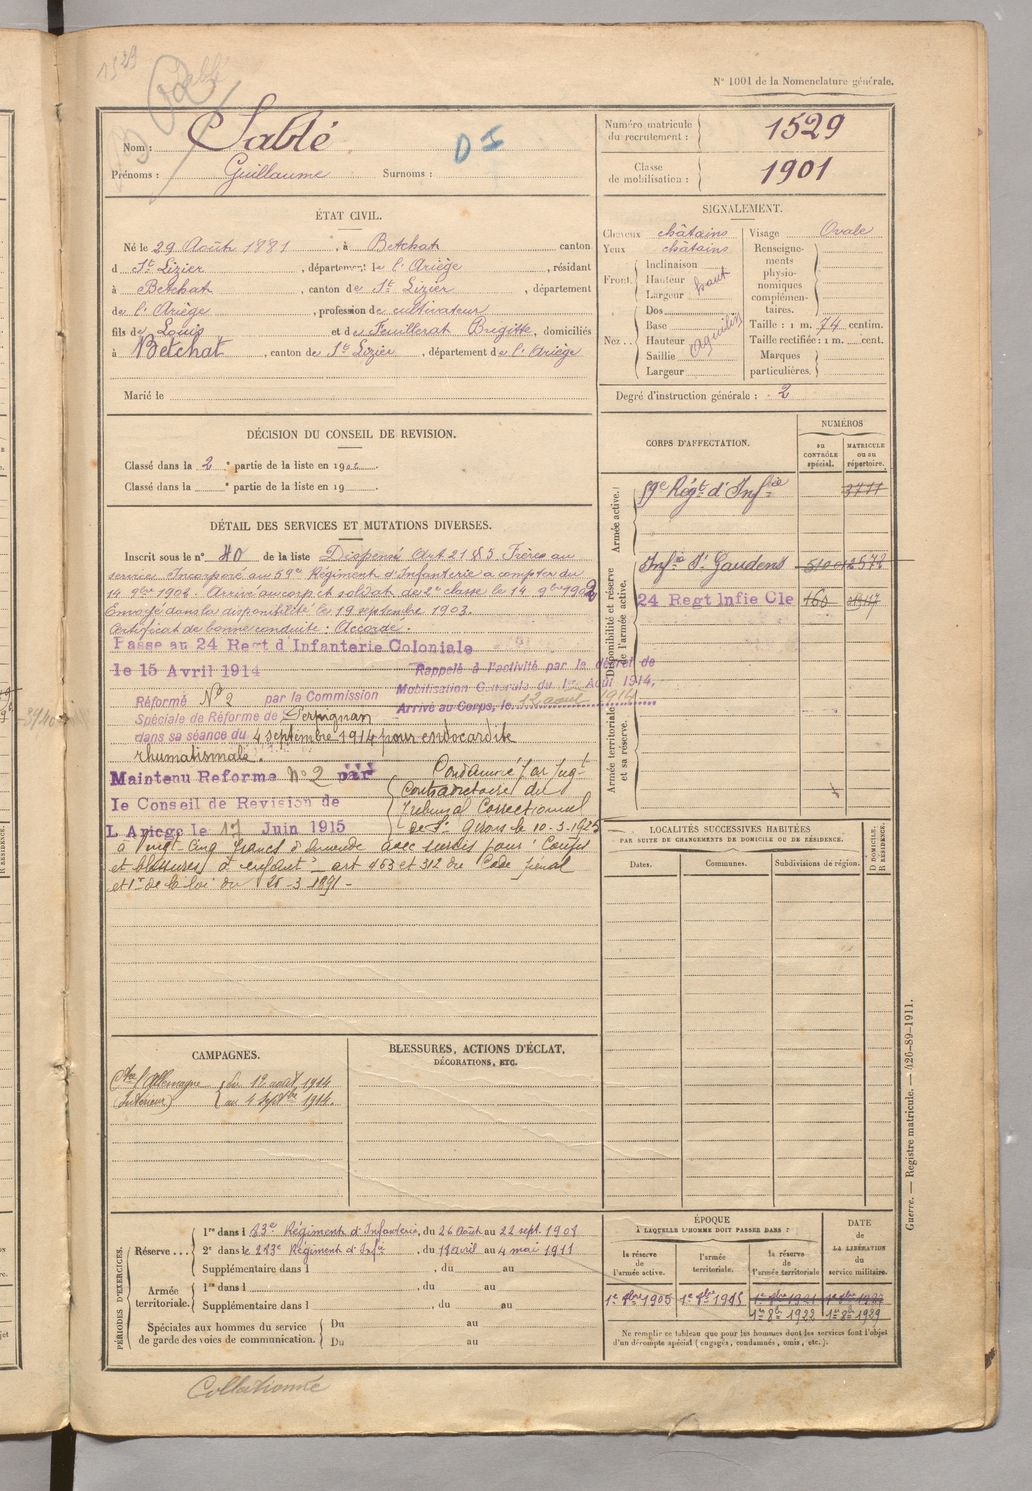 1529
N° 1001 de la Nomenclature générale.
Nom : Sablé
D I
Prénoms : Guillaume Surnoms :
Numéro matricule du recrutement : 1529
Classe de mobilisation : 1901
ÉTAT CIVIL.
Né le 29 Août 1881, à Betchat canton
d St Lizier, département de l'Ariège, résidant
à Betchat, canton de St Lizier, département
de l'Ariège, profession de cultivateur
fils de Louis et de Feuillerat Brigitte, domiciliés
à Betchat, canton de St Lizier, département de l'Ariège
Marié le
SIGNALEMENT.
Cheveux châtains
Yeux châtains
Front. Inclinaison
Hauteur haut
Largeur
Nez.. Dos
Base
Hauteur Aquilin
Saillie
Largeur
Visage Ovale
Renseignements physionomiques complémentaires.
Taille : 1 m. 74 centim.
Taille rectifiée : 1 m. cent.
Marques particulières.
Degré d'instruction générale : 2
DÉCISION DU CONSEIL DE REVISION.
Classé dans la 2e partie de la liste en 1902.
Classé dans la e partie de la liste en 19 .
DÉTAIL DES SERVICES ET MUTATIONS DIVERSES.
Inscrit sous le n° 40 de la liste Dispensé Art 21 § 5 Frère au
service. Incorporé au 59e Régiment d'Infanterie à compter du
14 9bre 1902. Arrivé au corp et soldat de 2e classe le 14 9bre 1902
Envoyé dans la disponibilité le 19 septembre 1903.
Certificat de bonne conduite : Accordé.
Passé au 24 Regt d'Infanterie Coloniale
le 15 Avril 1914
Rappelé à l'activité par le décret de
Mobilisation Générale du 1er Août 1914,
Arrivé au Corps, le 12 août 1914
Réformé N° 2 par la Commission
Spéciale de Réforme de Perpignan
dans sa séance du 4 septembre 1914 pour endocardite
rhumatismale.
Maintenu Reforme n° 2 par
le Conseil de Revision de
L'Ariege le 17 Juin 1915
Condamné par jugt
contradictoire du
Tribunal Correctionnel
de St Girons le 10-3-1925
à Vingt cinq francs d'amende avec sursis pour : Coups
et blessures à enfant - art 463 et 312 du Code pénal
et 1er de la loi du 26-3-1891 -
CORPS D'AFFECTATION.
NUMÉROS
au contrôle spécial.
matricule ou au répertoire.
Armée active.
59e Régt d'Infie 3777
Disponibilité et réserve de l'armée active.
Infie St Gaudens 5100 12572
24 Regt Infie Cle 160
Armée territoriale et sa réserve.
LOCALITÉS SUCCESSIVES HABITÉES
PAR SUITE DE CHANGEMENTS DE DOMICILE OU DE RÉSIDENCE.
Dates. Communes. Subdivisions de région. D DOMICILE. R RÉSIDENCE.
CAMPAGNES.
Ctre l'Allemagne du 12 août 1914
(Intérieur) au 4 septbre 1914.
BLESSURES, ACTIONS D'ÉCLAT,
DÉCORATIONS, ETC.
PÉRIODES D'EXERCICES.
Réserve... 1re dans l 83e Régiment d'Infanterie, du 26 Août au 22 sept. 1908
2e dans le 283e Régiment d'Infie, du 18 avril au 4 mai 1911
Supplémentaire dans l , du au
Armée territoriale. 1re dans l , du au
Supplémentaire dans l , du au
Spéciales aux hommes du service de garde des voies de communication. Du au
Du au
ÉPOQUE
À LAQUELLE L'HOMME DOIT PASSER DANS :
la réserve de l'armée active.
l'armée territoriale.
la réserve de l'armée territoriale
DATE de LA LIBÉRATION du service militaire.
1er 9bre 1905 1er 9bre 1915 1er 9bre 1921 1er 9bre 1927
1er 8bre 1922 1er 8bre 1929
Ne remplir ce tableau que pour les hommes dont les services font l'objet
d'un décompte spécial (engagés, condamnés, omis, etc.).
Guerre. — Registre matricule. — 426-89-1911.
Collationné